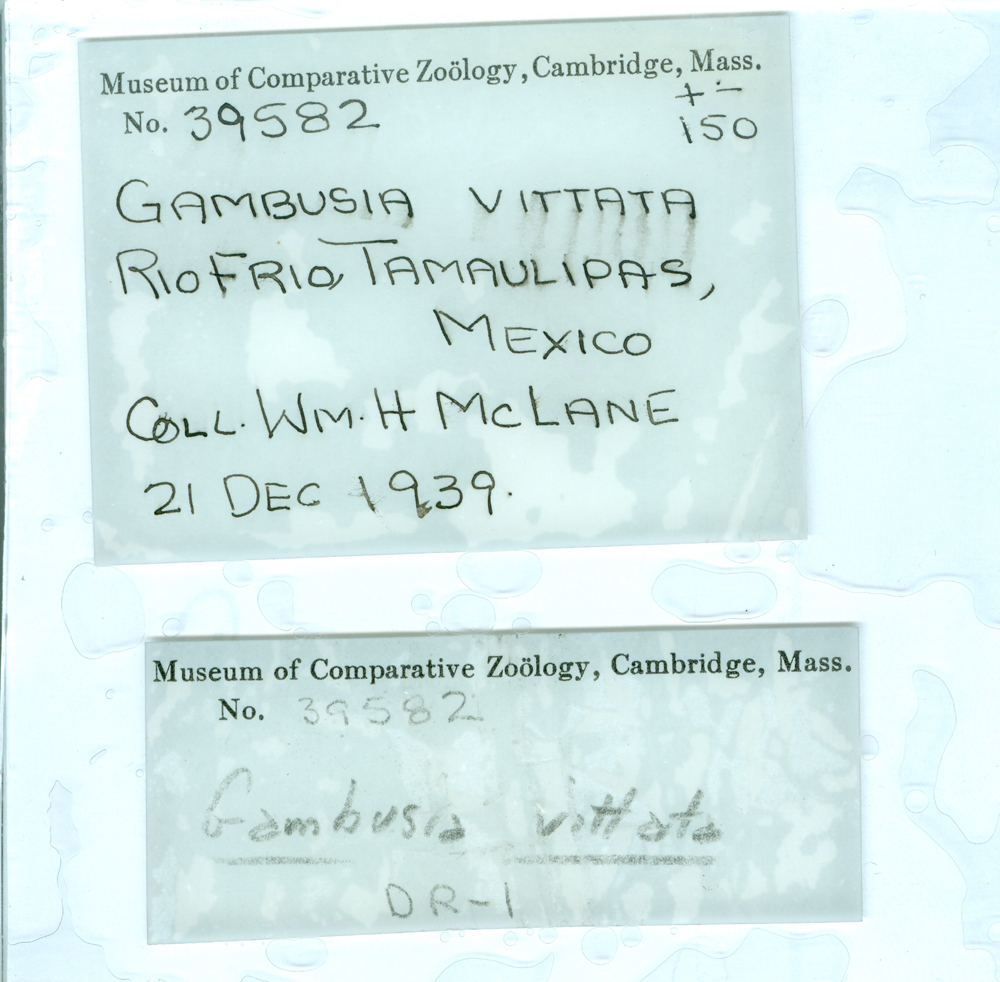 Museum of Comparative Zoölogy, Cambridge, Mass.
No. 39582 + -
150
GAMBUSIA VITTATA
RIO FRIO, TAMAULIPAS,
MEXICO
COLL. WM. H MCLANE
21 DEC 1939.
Museum of Comparative Zoölogy, Cambridge, Mass.
No. 39582
Gambusia vittata
DR-1